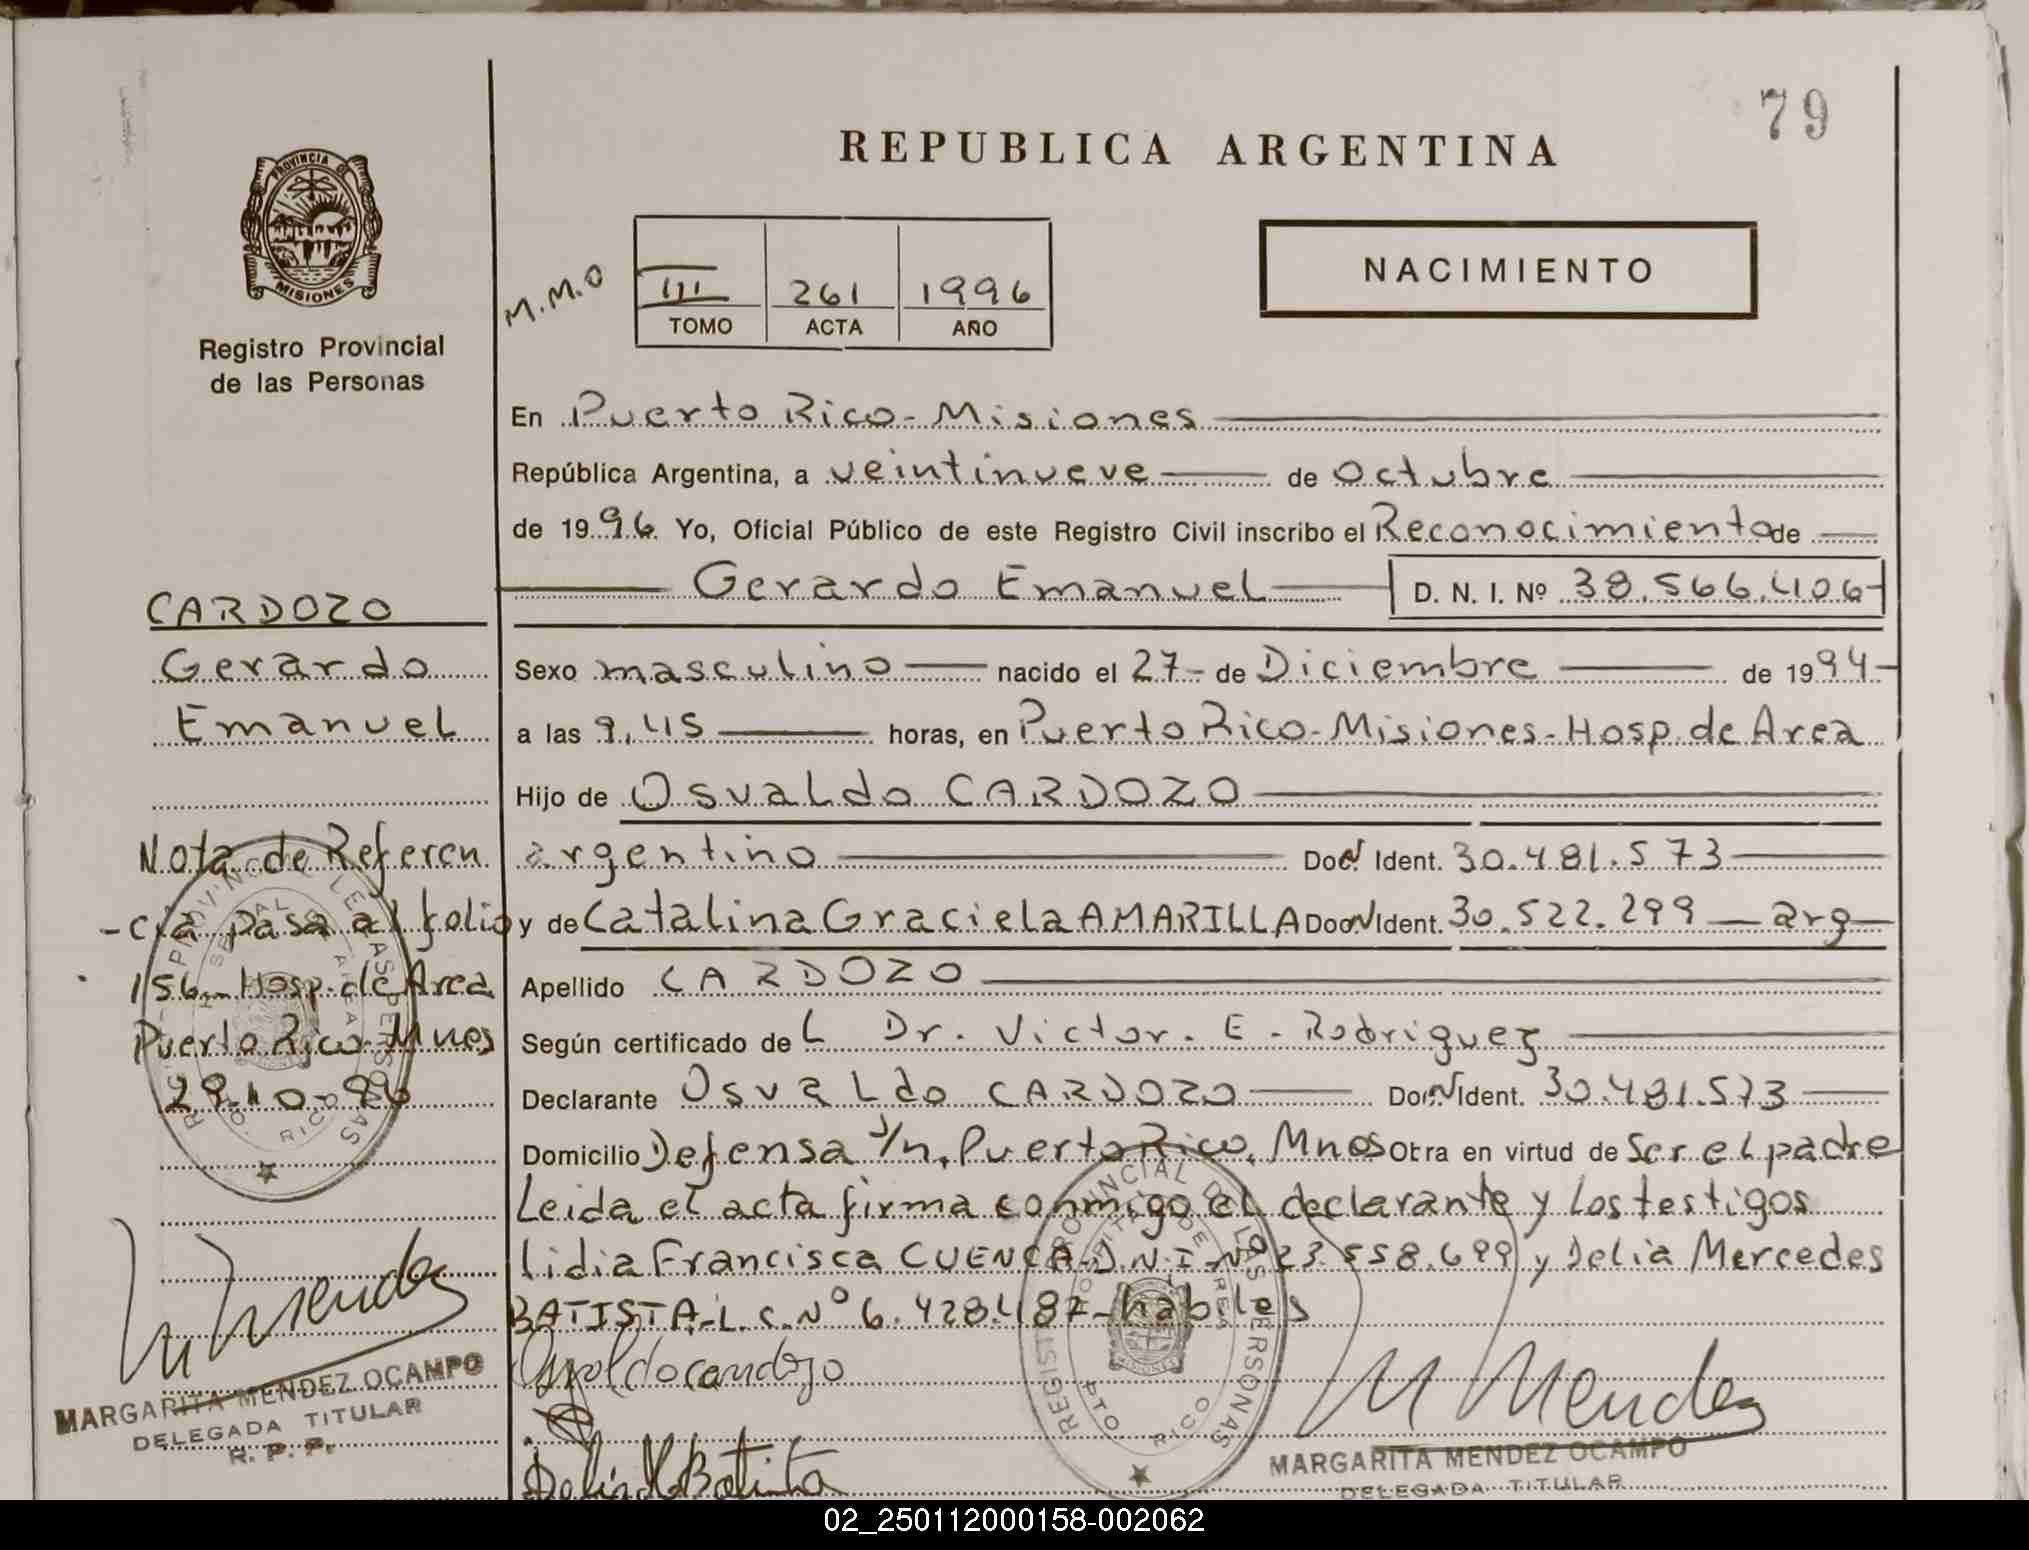 79
REPUBLICA ARGENTINA
PROVINCIA DE
MISIONES
Registro Provincial
de las Personas
M.M.O
III 261 1996
TOMO ACTA AÑO
NACIMIENTO
En Puerto Rico - Misiones
República Argentina, a veintinueve de Octubre
de 1996 Yo, Oficial Público de este Registro Civil inscribo el Reconocimiento de
Gerardo Emanuel D. N. I. Nº 38.566.406
Sexo masculino nacido el 27 - de Diciembre de 1994 -
a las 9,45 horas, en Puerto Rico - Misiones - Hosp. de Area
Hijo de Osvaldo CARDOZO
argentino Doc. Ident. 30.481.573
y de Catalina Graciela AMARILLA Doc. Ident. 30.522.299 - arg -
Apellido CARDOZO
Según certificado de L Dr. Victor. E. Rodriguez
Declarante Osvaldo CARDOZO Doc. Ident. 30.481.573
Domicilio Defensa s/n, Puerto Rico, Mnes Obra en virtud de Ser el padre
Leida el acta firma conmigo el declarante y los testigos
Lidia Francisca CUENCA - D.N.I. Nº 23.558.699 y Delia Mercedes
BATISTA - L.C. Nº 6.428.487 - habiles
Osvaldo cardozo
Delia M Batista
M Mendez
MARGARITA MENDEZ OCAMPO
DELEGADA TITULAR
CARDOZO
Gerardo
Emanuel
Nota de Referen
- cia pasa al folio
156 - Hosp. de Area
Puerto Rico - Mnes
29-10-96
M Mendez
MARGARITA MENDEZ OCAMPO
DELEGADA TITULAR
R. P. P.
REGISTRO PROVINCIAL DE LAS PERSONAS
HOSPITAL DE AREA
PTO. RICO
REGISTRO PROVINCIAL DE LAS PERSONAS
HOSPITAL DE AREA
PTO RICO
MISIONES
02_250112000158-002062